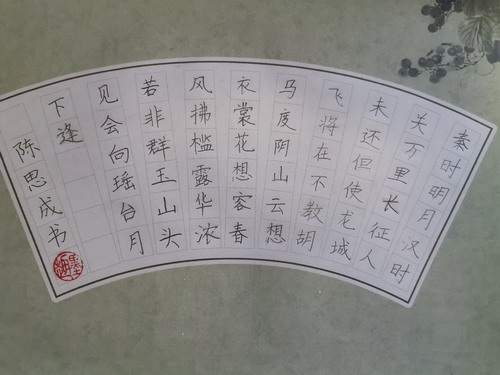 秦时明月汉时
关万里长征人
未还但使龙城
飞将在不教胡
马度阴山云想
衣裳花想容春
风拂槛露华浓
若非群玉山头
见会向瑶台月
下逢
陈思成书